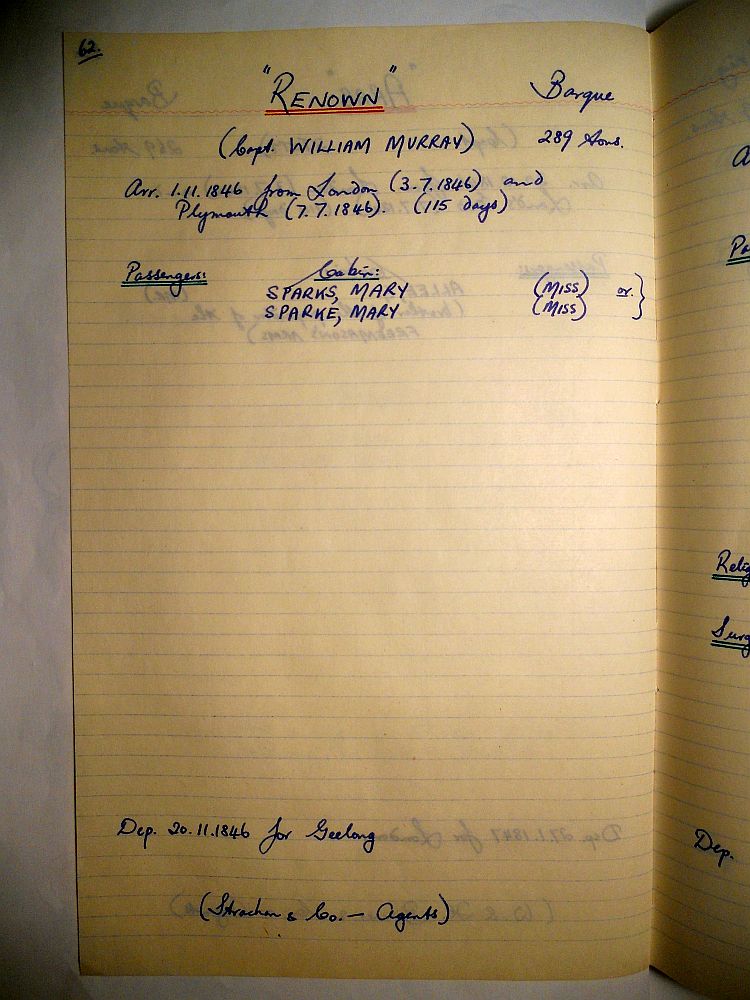 62.
"RENOWN" Barque
(Capt. WILLIAM MURRAY) 289 tons.
Arr. 1.11.1846 from London (3.7.1846) and
Plymouth (7.7.1846). (115 days)
Passengers: Cabin:
SPARKS, MARY (MISS) or }
SPARKE, MARY (MISS)
Dep. 20.11.1846 for Geelong
(Strachan & Co. — Agents)
Relig
Surg
Dep.